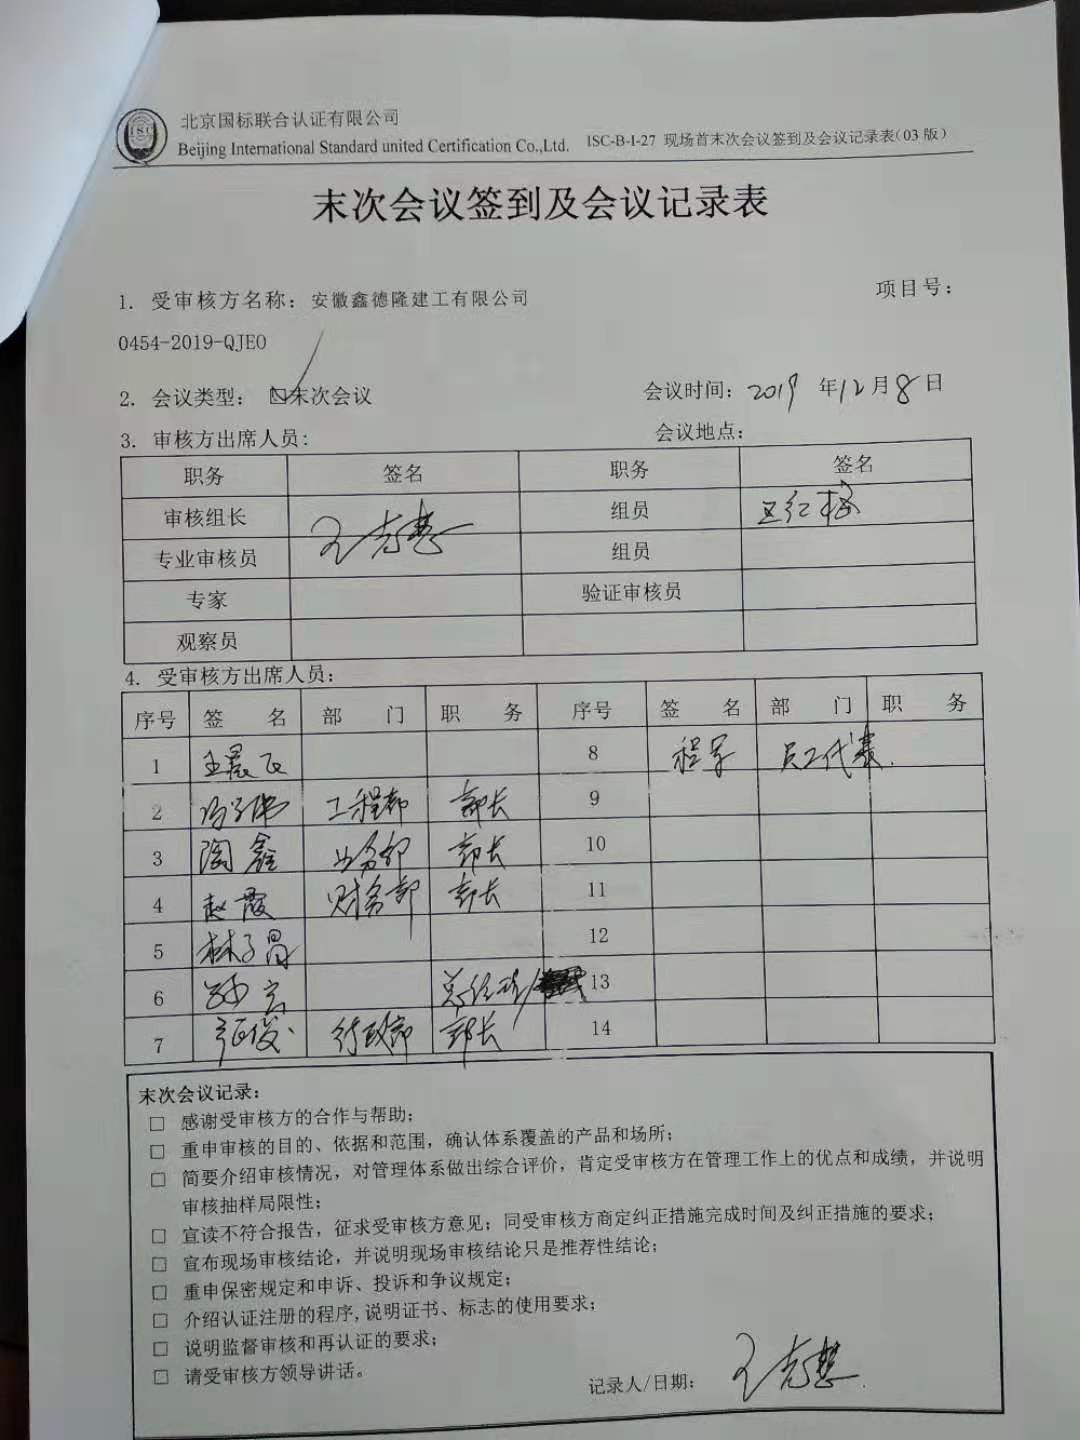 ISC
北京国标联合认证有限公司
Beijing International Standard united Certification Co.,Ltd. ISC-B-I-27 现场首末次会议签到及会议记录表(03 版)
末次会议签到及会议记录表
1. 受审核方名称: 安徽鑫德隆建工有限公司 项目号:
0454-2019-QJEO
2. 会议类型: ☑末次会议 会议时间: 2019 年12月8日
3. 审核方出席人员: 会议地点:
职务 签名 职务 签名
审核组长 组员 王红梅
专业审核员 组员
专家 验证审核员
观察员
4. 受审核方出席人员:
序号 签 名 部 门 职 务 序号 签 名 部 门 职 务
1 王晨飞 8 程军 员工代表
2 工程部 部长 9
3 陶鑫 业务部 部长 10
4 赵霞 财务部 部长 11
5 林子昌 12
6 总经理/ 13
7 行政部 部长 14
末次会议记录:
□ 感谢受审核方的合作与帮助;
□ 重申审核的目的、依据和范围，确认体系覆盖的产品和场所;
□ 简要介绍审核情况，对管理体系做出综合评价，肯定受审核方在管理工作上的优点和成绩，并说明
审核抽样局限性;
□ 宣读不符合报告，征求受审核方意见；同受审核方商定纠正措施完成时间及纠正措施的要求;
□ 宣布现场审核结论，并说明现场审核结论只是推荐性结论;
□ 重申保密规定和申诉、投诉和争议规定;
□ 介绍认证注册的程序,说明证书、标志的使用要求;
□ 说明监督审核和再认证的要求;
□ 请受审核方领导讲话。
记录人/日期: